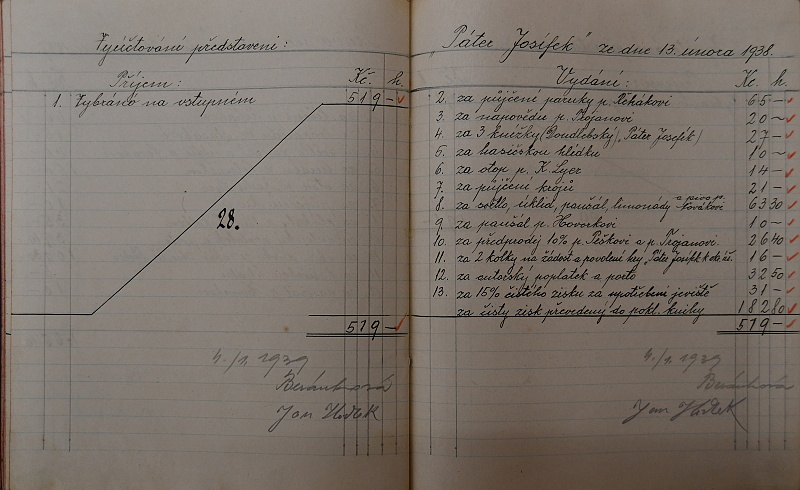 Vyúčtování představení:
Příjem: Kč. h.
1. Vybráno na vstupném 519 -
28.
519 -
4./1. 1939
Beránková
Jan
"Páter Josífek" ze dne 13. února 1938.
Vydání: Kč. h.
2. za půjčení paruky p. Řehákovi 65 -
3. za nápovědu p. Trojanovi 20 -
4. za 3 knížky (Doudlebský "Páter Josefek) 27 -
5. za hasičskou hlídku 10 -
6. za otop p. K. Lyer 14 -
7. za půjčení krojů 21 -
8. za světlo, úklid, paušál, limonády a pivo p. Novákovi 63 30
9. za paušál p. Hovorkovi 10 -
10. za předprodej 10% p. Peškovi a p. Trojanovi. 26 40
11. za 2 kolky na žádost a povolení hry "Páter Josífek" 16 -
12. za autorský poplatek a porto 32 50
13. za 15% čistého zisku za upotřebení jeviště 31 -
za čistý zisk převedený do pokl. knihy 182 80
519 -
4./1. 1939
Beránková
Jan